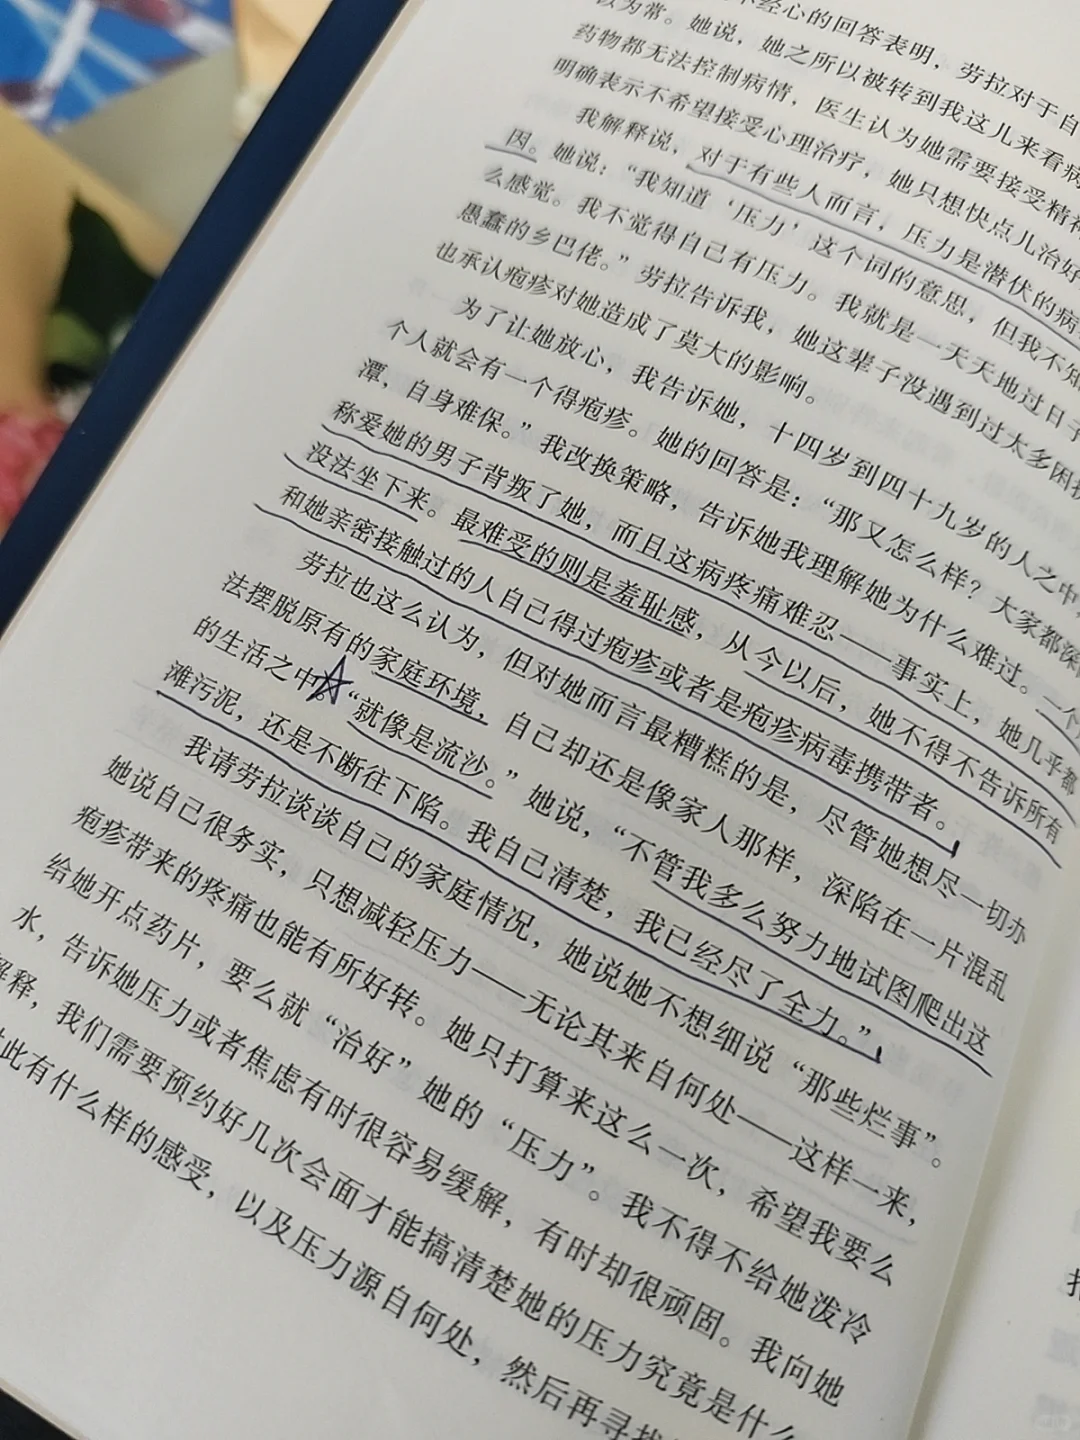 不经心的回答表明，劳拉对于自
以为常。她说，她之所以被转到我这儿来看病
药物都无法控制病情，医生认为她需要接受精神
明确表示不希望接受心理治疗，她只想快点儿治好
我解释说，对于有些人而言，压力是潜伏的病
因。她说：“我知道‘压力’这个词的意思，但我不知
么感觉。我不觉得自己有压力。我就是一天天地过日子
愚蠢的乡巴佬。”劳拉告诉我，她这辈子没遇到过太多困
也承认疱疹对她造成了莫大的影响。
为了让她放心，我告诉她，十四岁到四十九岁的人之中
个人就会有一个得疱疹。她的回答是：“那又怎么样？大家都深
潭，自身难保。”我改换策略，告诉她我理解她为什么难过。一个
称爱她的男子背叛了她，而且这病疼痛难忍——事实上，她几乎都
没法坐下来。最难受的则是羞耻感，从今以后，她不得不告诉所有
和她亲密接触过的人自己得过疱疹或者是疱疹病毒携带者。
劳拉也这么认为，但对她而言最糟糕的是，尽管她想尽一切办
法摆脱原有的家庭环境，自己却还是像家人那样，深陷在一片混乱
的生活之中。“就像是流沙。”她说，“不管我多么努力地试图爬出这
滩污泥，还是不断往下陷。我自己清楚，我已经尽了全力。”
我请劳拉谈谈自己的家庭情况，她说她不想细说“那些烂事”。
她说自己很务实，只想减轻压力——无论其来自何处——这样一来，
疱疹带来的疼痛也能有所好转。她只打算来这么一次，希望我要么
给她开点药片，要么就“治好”她的“压力”。我不得不给她泼冷
水，告诉她压力或者焦虑有时很容易缓解，有时却很顽固。我向她
解释，我们需要预约好几次会面才能搞清楚她的压力究竟是什么
此有什么样的感受，以及压力源自何处，然后再寻找